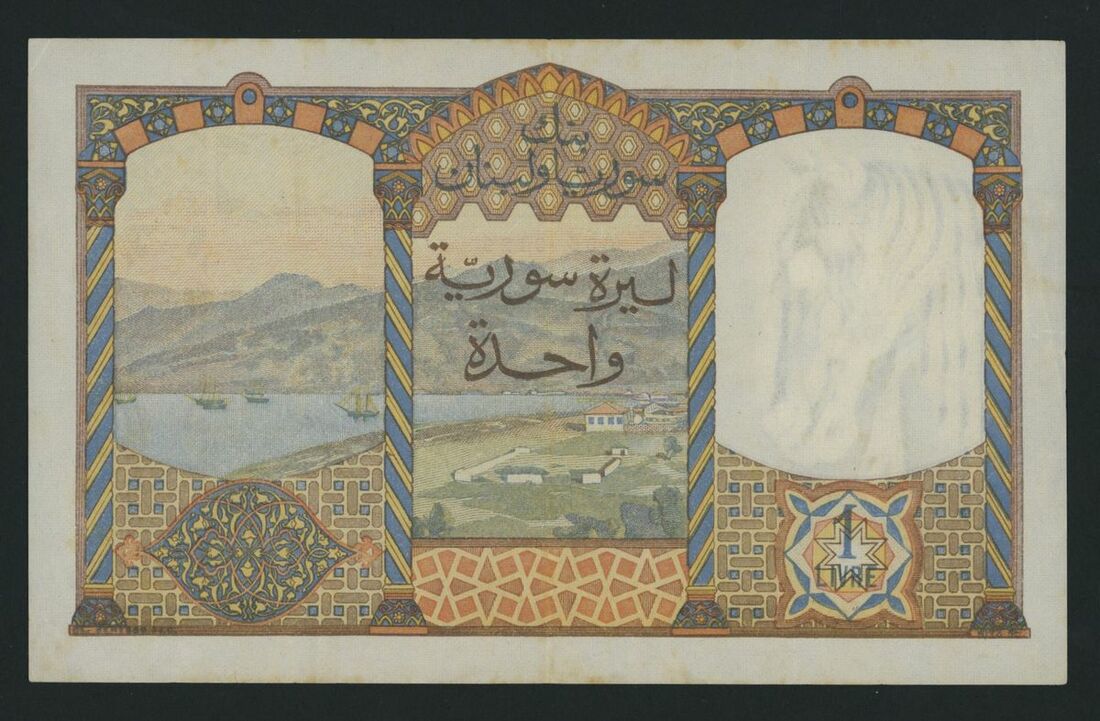 بنك
سوريا ولبنان
ليرة سوريّة
واحدة
1
LIVRE